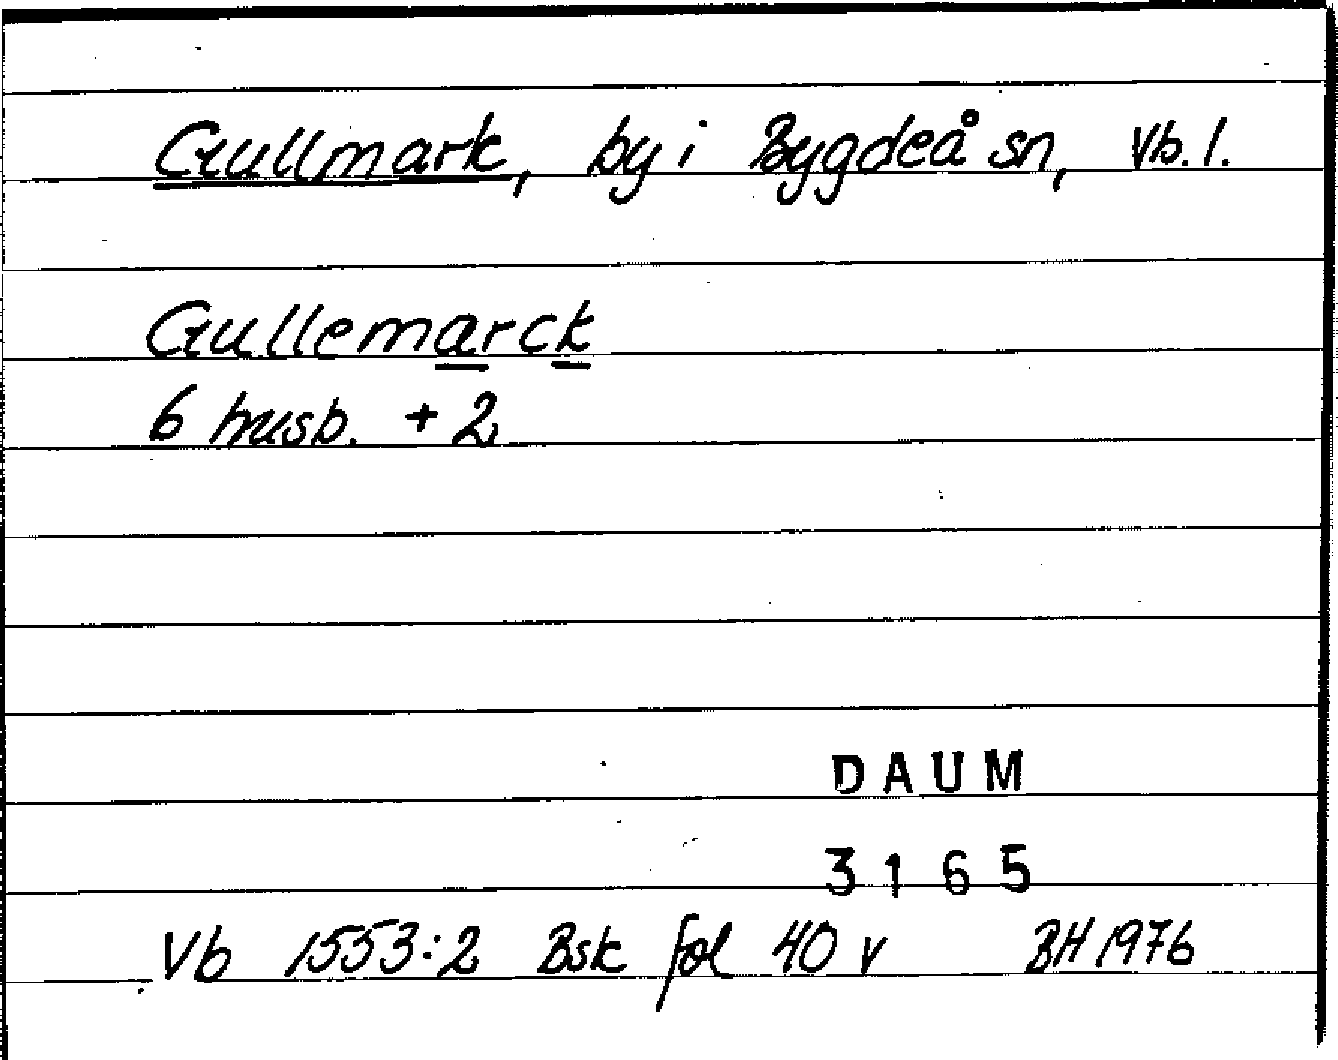 Gullmark, by i Bygdeå sn, Vb. l.
Gullemarck
6 husb. + 2
DAUM
3165
Vb 1553:2 Bsk fol 40 v BH 1976